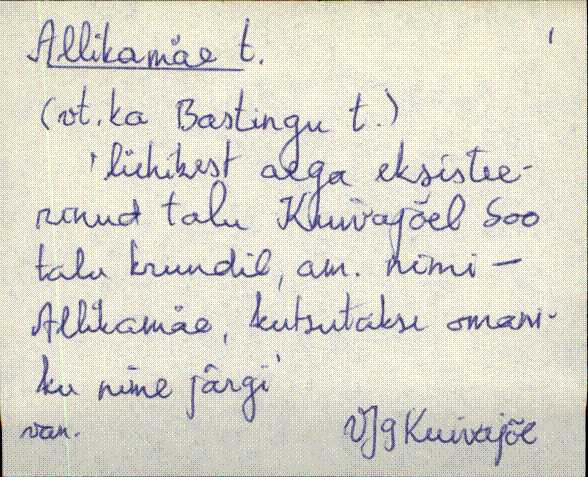 Allikamäe t.
(vt. ka Bastingu t.)
'lühikest aega eksistee-
rinud talu Kuivajõel Soo
talu krundil, am. nimi –
Allikamäe, kutsutakse omani-
ku nime järgi'
van. VJg Kuivajõe